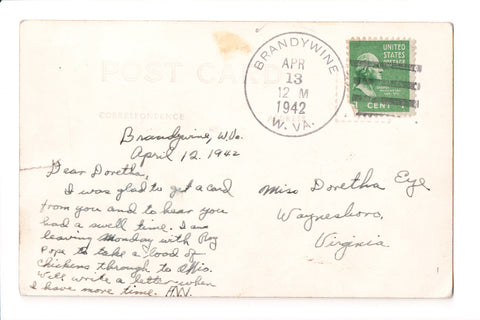 POST CARD
CORRESPONDENCE
BRANDYWINE
APR
13
12 M
1942
W. VA.
UNITED
STATES
POSTAGE
1 CENT 1
Brandywine, W.Va.
April 12, 1942
Dear Doretha,
I was glad to get a card
from you and to hear you
had a swell time. I am
leaving Monday with Roy
Pope to take a load of
chickens through to Ohio.
Will write a letter when
I have more time. A.W.
Miss Doretha Eye
Waynesboro,
Virginia.